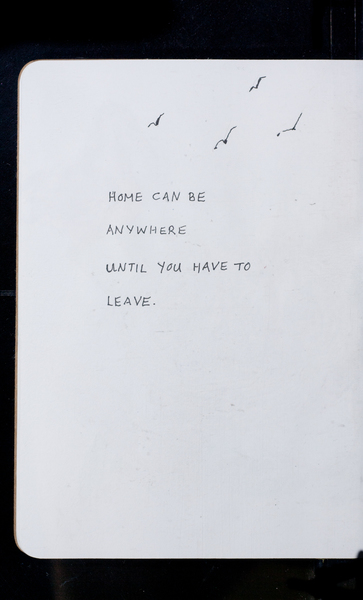 HOME CAN BE
ANYWHERE
UNTIL YOU HAVE TO
LEAVE.